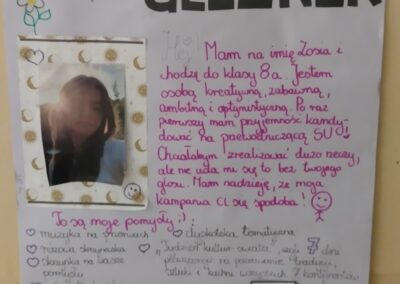 Hej!
Mam na imię Zosia i
chodzę do klasy 8a. Jestem
osobą kreatywną, zabawną,
ambitną i optymistyczną. Po raz
pierwszy mam przyjemność kandy-
dować na przewodniczącą SU!
Chciałabym zrealizować dużo rzeczy,
ale nie uda mi się to bez twojego
głosu. Mam nadzieję, że moja
kampania Ci się spodoba!
To są moje pomysły :) :
muzyka na przerwach
różowa skrzyneczka
skrzynka na wasze
pomysły
dyskoteka tematyczna
"Tydzień kultur świata", czyli 7 dni